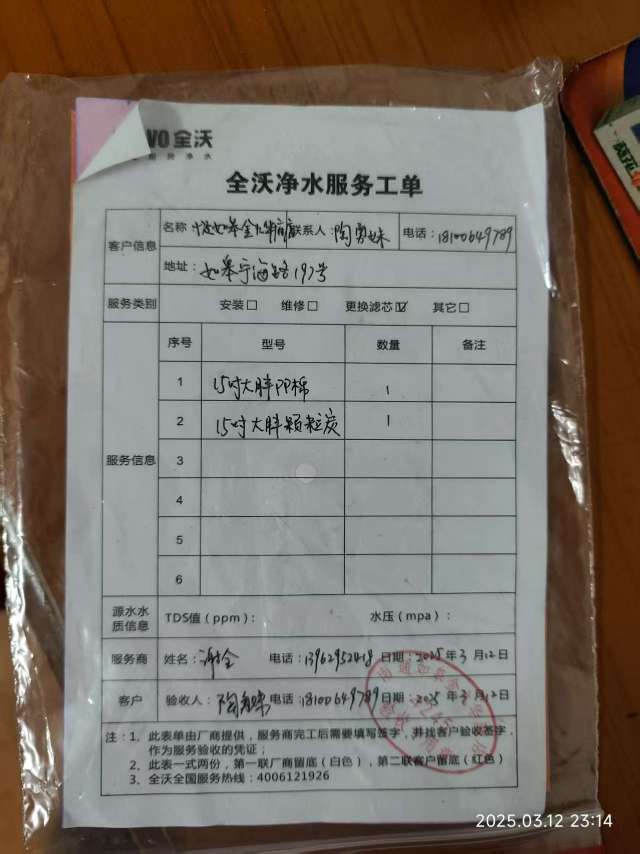 VO全沃
净水
全沃净水服务工单
客户信息
名称 如皋金九华 联系人：陶勇妹 电话：18100649789
地址：如皋宁海路197号
服务类别 安装□ 维修□ 更换滤芯☑ 其它□
服务信息
序号 型号 数量 备注
1 15吋大胖PP棉 1
2 15吋大胖颗粒炭 1
3
4
5
6
源水水质信息 TDS值（ppm）： 水压（mpa）：
服务商 姓名： 电话：13962952418 日期：2025年3月12日
客户 验收人：陶勇妹 电话：18100649789 日期：2025年3月12日
注：1、此表单由厂商提供，服务商完工后需要填写签字，并找客户验收签字，
作为服务验收的凭证；
2、此表一式两份，第一联厂商留底（白色），第二联客户留底（红色）
3、全沃全国服务热线：4006121926
2025.03.12 23:14